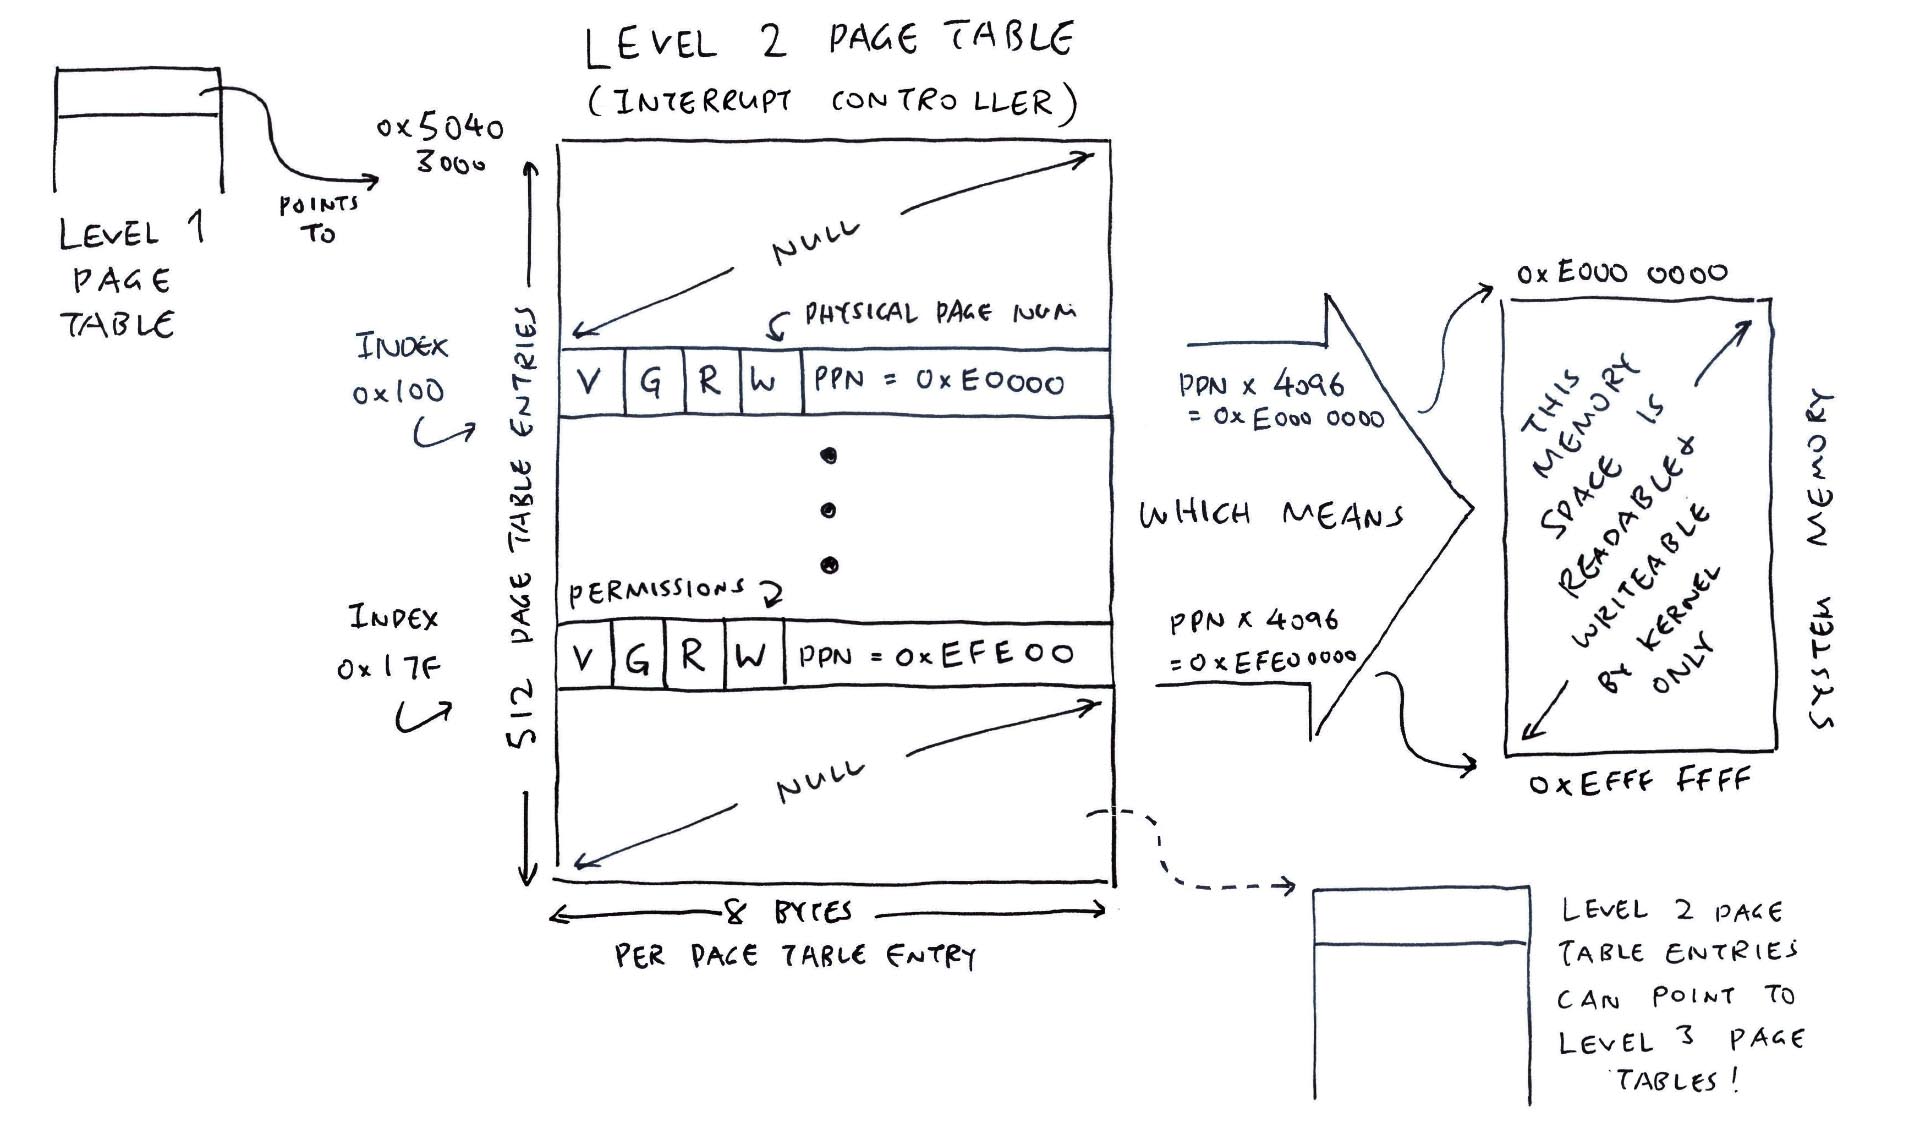 LEVEL 2 PAGE TABLE
(INTERRUPT CONTROLLER)
0x5040
3000
POINTS
TO
LEVEL 1
PAGE
TABLE
512 PAGE TABLE ENTRIES
NULL
PHYSICAL PAGE NUM
INDEX
0x100
V G R W PPN = 0xE0000
PERMISSIONS
INDEX
0x17F
V G R W PPN = 0xEFE00
NULL
8 BYTES
PER PAGE TABLE ENTRY
PPN x 4096
= 0xE000 0000
WHICH MEANS
PPN x 4096
= 0xEFE00000
0xE000 0000
THIS
MEMORY
SPACE IS
READABLE &
WRITEABLE
BY KERNEL
ONLY
0xEFFF FFFF
SYSTEM MEMORY
LEVEL 2 PAGE
TABLE ENTRIES
CAN POINT TO
LEVEL 3 PAGE
TABLES!